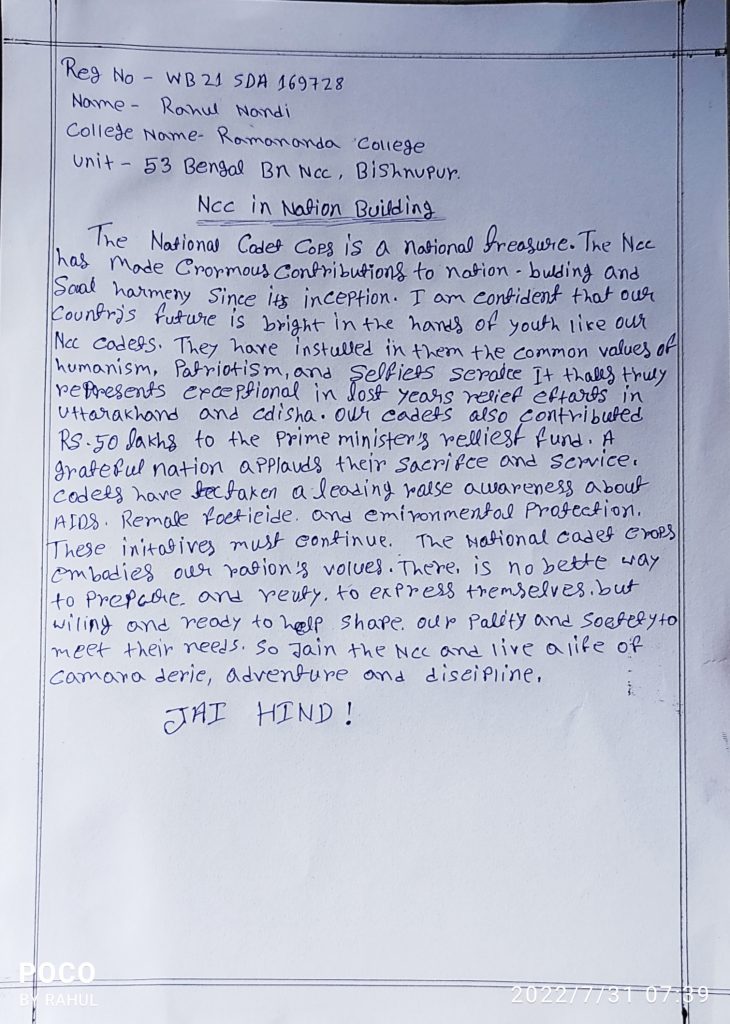 Reg No - WB21 SDA 169728
Name - Rahul Nandi
College Name- Ramananda College
Unit - 53 Bengal Bn Ncc, Bishnupur.
Ncc in Nation Building
The National Cadet Cops is a national treasure. The Ncc
has Made Enormous Contributions to nation - bulding and
Soal harmeny Since its inception. I am confident that our
Country's future is bright in the hands of youth like our
Ncc Cadets. They have instulled in them the common values of
humanism, Patriotism, and Selfiets service It thats truly
represents exceptional in last years relief effarts in
Uttarakhand and cdisha. our cadets also contributed
RS.50 lakhs to the Prime minister's relliest fund. A
grateful nation applauds their Sacrifce and Service.
Codets have taken a leading raise awareness about
AIDS. Remale foeticide. and emironmental Protection.
These initatives must continue. The National cadet crops
embodies our ration's volues. There. is no bette way
to Prepare. and reuty. to express themselves. but
wiling and ready to help Shape. our Pality and Soetety to
meet their needs. So Jain the Ncc and live a life of
Camara derie, adventure and discipline.
JAI HIND!
POCO
BY RAHUL
2022/7/31 07:39